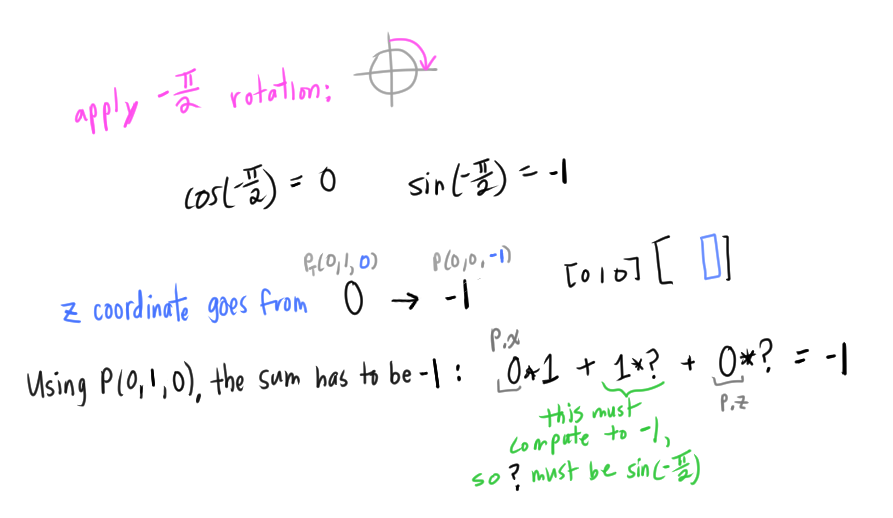 apply -π/2 rotation:
cos(-π/2) = 0 sin(-π/2) = -1
P_T(0,1,0) P(0,0,-1)
z coordinate goes from 0 → -1 [0 1 0] [ ]
P.x
Using P(0,1,0), the sum has to be -1 : 0*1 + 1*? + 0*? = -1
P.z
this must
compute to -1,
so ? must be sin(-π/2)